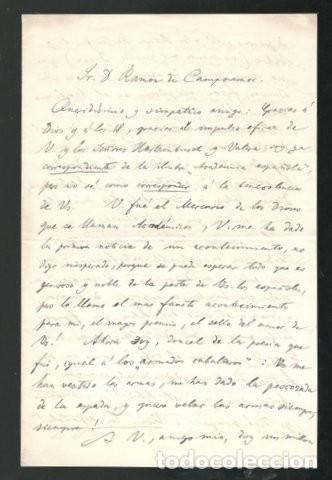 Sr. D. Ramon de Campoamor.
Queridísimo y simpático amigo: Gracias á
Dios y á los U., gracias al impulso eficaz de
V. y los Señores Hartzenbusch y Valera soy ya
correspondiente de la Academia española,
pero no sé como corresponder á la benevolencia
de Vs. V. fué el Mercurio de los Dioses
que se llaman Académicos, V. me ha dado
la primera noticia de un acontecimiento, no
digo inesperado, porque se puede esperar todo que es
generoso y noble de la parte de Vs. los españoles,
pero lo llamo el mas fausto acontecimiento
para mi, el mayor premio, el sello del amor de
Vs! Ahora soy, doncel de la poesia que
fuí, igual á los "armados caballeros": Vs. me
han vestido las armas, me han dado la pescozada
de la espada, y quiero velar las armas siempre,
siempre!
A V., amigo mio, doy un millon
todocoleccion